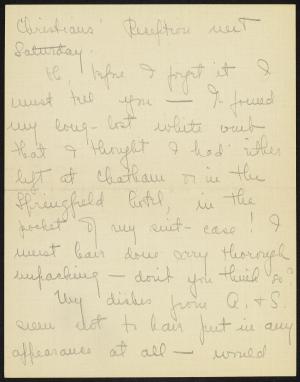 Christians' Reception next
Saturday.
Oh, before I forget it I
must tell you — I found
my long-lost white comb
that I thought I had either
left at Chatham or in the
Springfield hotel, in the
pocket of my suit-case! I
must have done very thorough
unpacking — don't you think so?
My dishes from A. & S.
seem not to have put in any
appearance at all — would